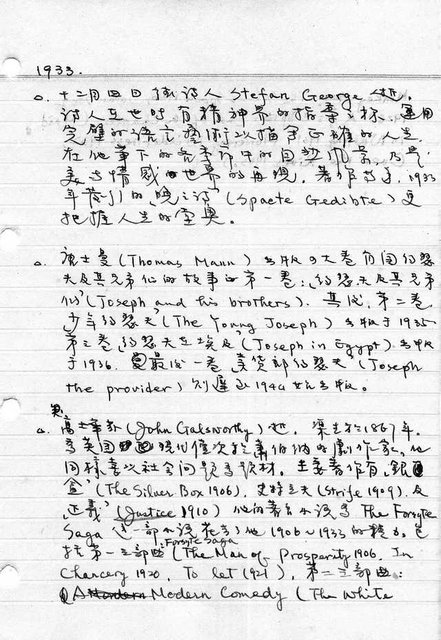 1933.
○. 十二月四日 抒情詩人 Stefan George 逝.
詩人在世時有精神界的指導之標, 運用
完璧的語言藝術以描寫正確的人生.
在他筆下的四季節中的自然風景, 乃是
美與情感世界的再現. 著作 1933
年 的「晚之詩」(Spaete Gedichte) 更
把握人生的空奧。
○. 湯士曼 (Thomas Mann) 出版四大卷的「約瑟
夫及其兄弟們」的故事的第一卷:「約瑟夫及其兄弟
們」(Joseph and his brothers). 其後, 第二卷
「少年約瑟夫」(The Young Joseph) 出版于 1935
第三卷「約瑟夫在埃及」(Joseph in Egypt). 出版
于 1936. 最後一卷「 約瑟夫」(Joseph
the provider) 則遲至 1944 始出版。
○. 高士華綏 (John Galsworthy) 逝. 渠生於 1867 年.
為英國現代僅次於蕭伯納的劇作家. 他
同樣喜以社會問題為題材. 主要著作有「銀
盒」(The Silver Box 1906), (Strife 1909), 及
「正義」(Justice 1910) 他的著名小說為 The Forsyte
Saga 這一部小說花去了他 1906~1933 的精力. 包
括第一三部曲 Forsyte Saga (The Man of Prosperity 1906, In
Chancery 1920, To let 1921), 第二三部曲:
A Modern Comedy (The White